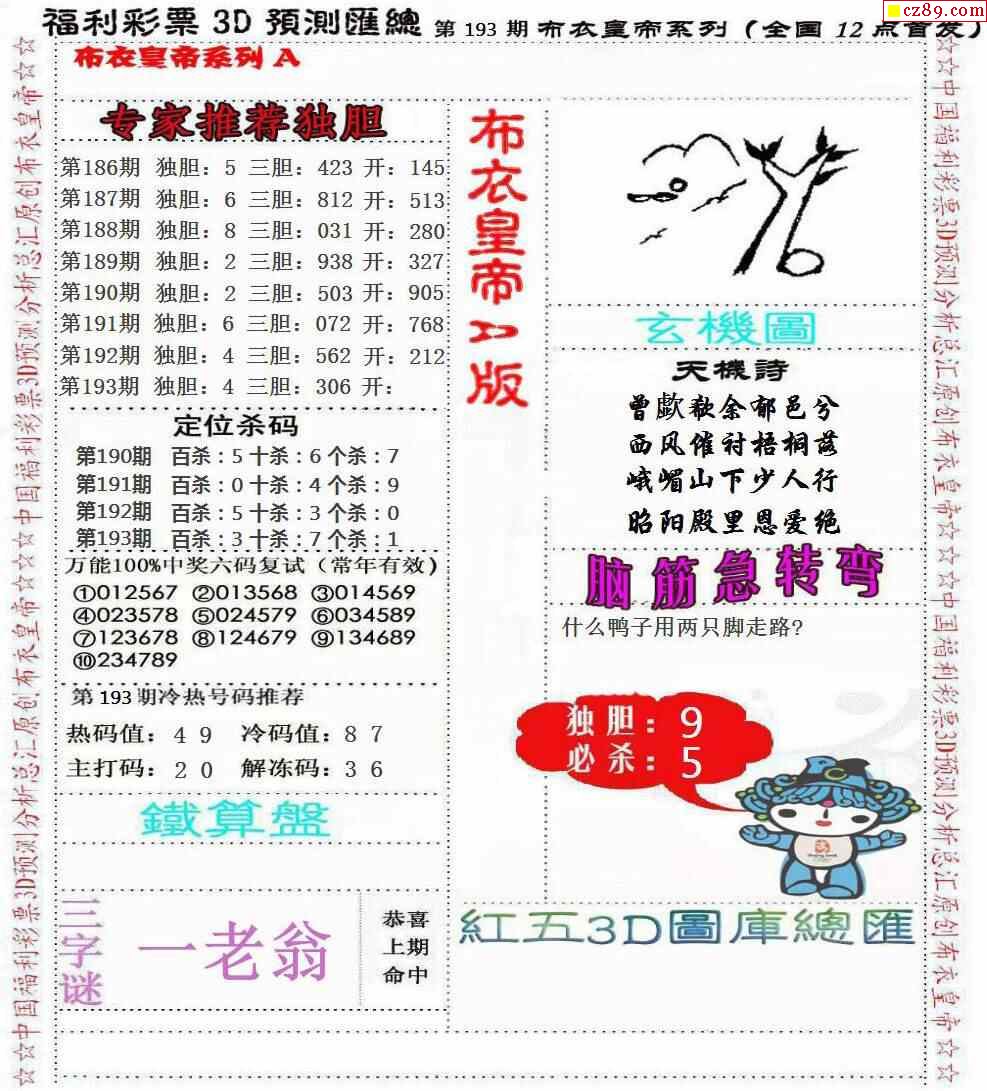 福利彩票 3D 預測匯總 第 193 期 布衣皇帝系列（全国 12 点首发）
cz89.com
布衣皇帝系列 A
专家推荐独胆
第186期 独胆：5 三胆：423 开：145
第187期 独胆：6 三胆：812 开：513
第188期 独胆：8 三胆：031 开：280
第189期 独胆：2 三胆：938 开：327
第190期 独胆：2 三胆：503 开：905
第191期 独胆：6 三胆：072 开：768
第192期 独胆：4 三胆：562 开：212
第193期 独胆：4 三胆：306 开：
定位杀码
第190期 百杀：5 十杀：6 个杀：7
第191期 百杀：0 十杀：4 个杀：9
第192期 百杀：5 十杀：3 个杀：0
第193期 百杀：3 十杀：7 个杀：1
万能100%中奖六码复试（常年有效）
①012567 ②013568 ③014569
④023578 ⑤024579 ⑥034589
⑦123678 ⑧124679 ⑨134689
⑩234789
第 193 期冷热号码推荐
热码值：4 9 冷码值：8 7
主打码：2 0 解冻码：3 6
鐵算盤
三字谜
一老翁
恭喜
上期
命中
布衣皇帝A版
玄機圖
天機詩
曾歔欷余郁邑兮
西风催衬梧桐落
峨嵋山下少人行
昭阳殿里恩爱绝
脑筋急转弯
什么鸭子用两只脚走路?
独胆：9
必杀：5
紅五3D圖庫總匯
☆☆中国福利彩票3D预测分析总汇原创布衣皇帝☆☆☆中国福利彩票3D预测分析总汇原创布衣皇帝☆☆
☆☆中国福利彩票3D预测分析总汇原创布衣皇帝☆☆☆中国福利彩票3D预测分析总汇原创布衣皇帝☆☆